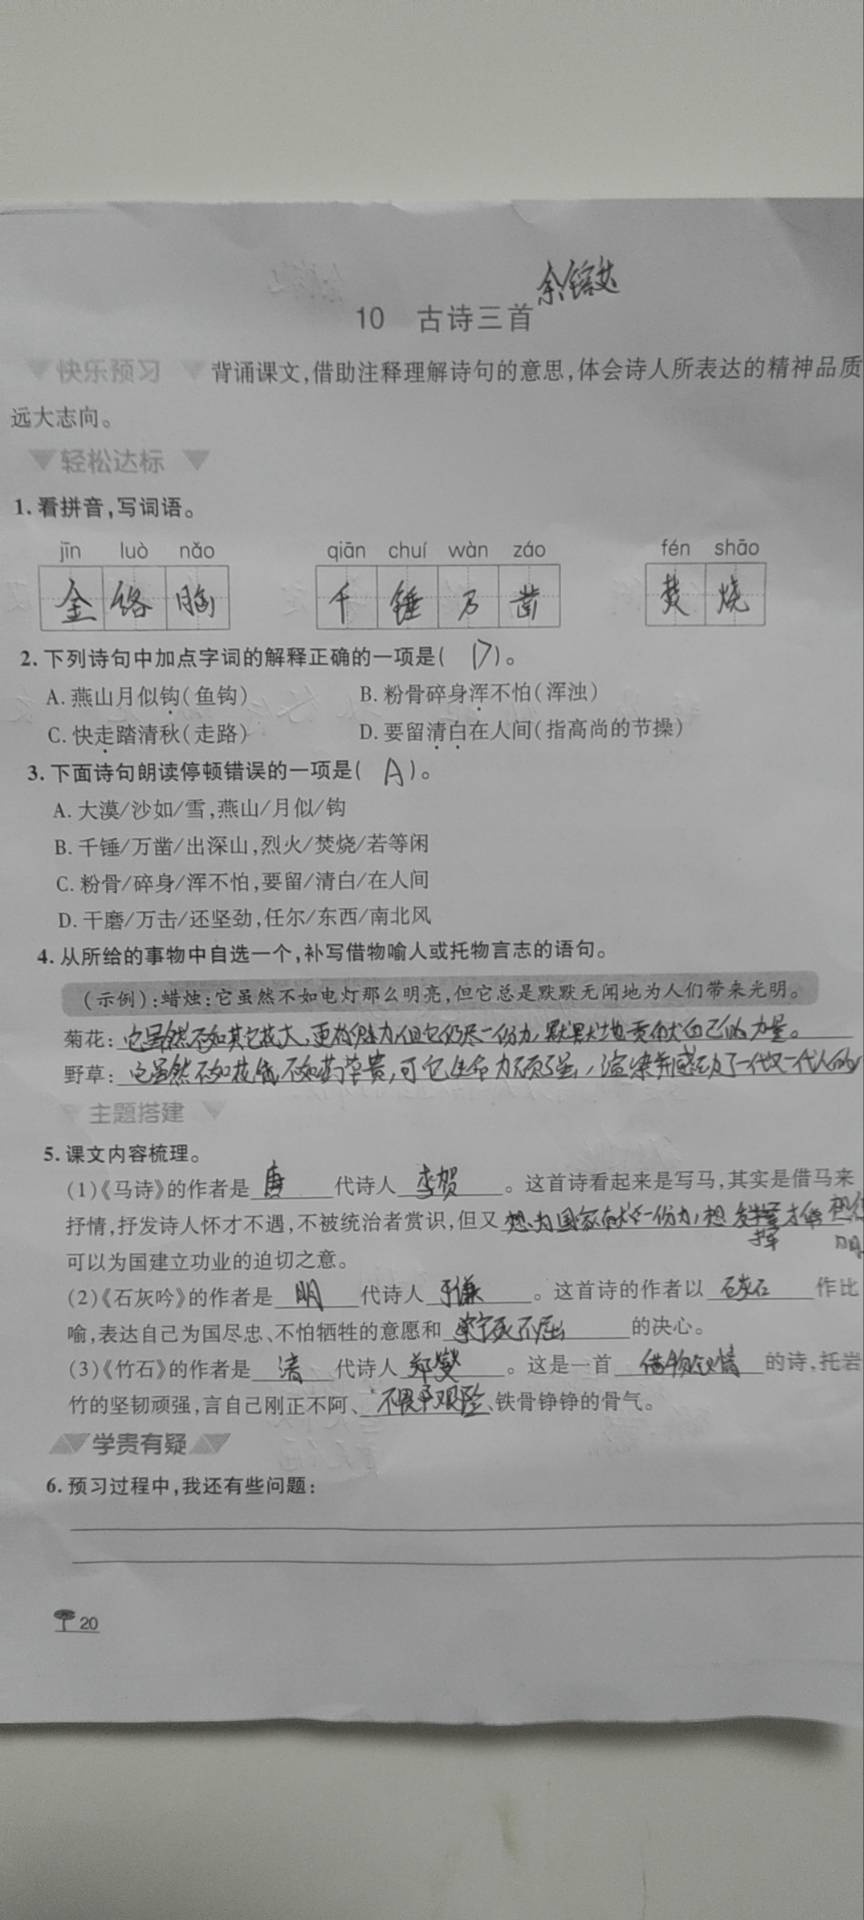 余镕苡
10 古诗三首
快乐预习 背诵课文,借助注释理解诗句的意思,体会诗人所表达的精神品质
远大志向。
轻松达标
1.看拼音,写词语。
jīn luò nǎo qiān chuí wàn záo fén shāo
金络脑 千锤万凿 焚烧
2.下列诗句中加点字词的解释正确的一项是( D )。
A.燕山月似钩(鱼钩) B.粉骨碎身浑不怕(浑浊)
C.快走踏清秋(走路) D.要留清白在人间(指高尚的节操)
3.下面诗句朗读停顿错误的一项是( A )。
A.大漠/沙如/雪,燕山/月似/钩
B.千锤/万凿/出深山,烈火/焚烧/若等闲
C.粉骨/碎身/浑不怕,要留/清白/在人间
D.千磨/万击/还坚劲,任尔/东西/南北风
4.从所给的事物中自选一个,补写借物喻人或托物言志的语句。
(示例):蜡烛:它虽然不如电灯那么明亮,但它总是默默无闻地为人们带来光明。
菊花:它虽然不如其它花大,更有魅力,但它仍尽一份力,默默地贡献自己的力量。
野草:它虽然不如花低,不如药草贵,可它生命力顽强,渲染并感动了一代又一代人的
主题搭建
5.课文内容梳理。
(1)《马诗》的作者是唐代诗人李贺。这首诗看起来是写马,其实是借马来
抒情,抒发诗人怀才不遇,不被统治者赏识,但又想为国家献一份力,想发挥才华
可以为国建立功业的迫切之意。
(2)《石灰吟》的作者是明代诗人于谦。这首诗的作者以石灰石作比
喻,表达自己为国尽忠、不怕牺牲的意愿和宁死不屈的决心。
(3)《竹石》的作者是清代诗人郑燮。这是一首借物抒情的诗,托岩
竹的坚韧顽强,言自己刚正不阿、不畏艰险、铁骨铮铮的骨气。
学贵有疑
6.预习过程中,我还有些问题:
20